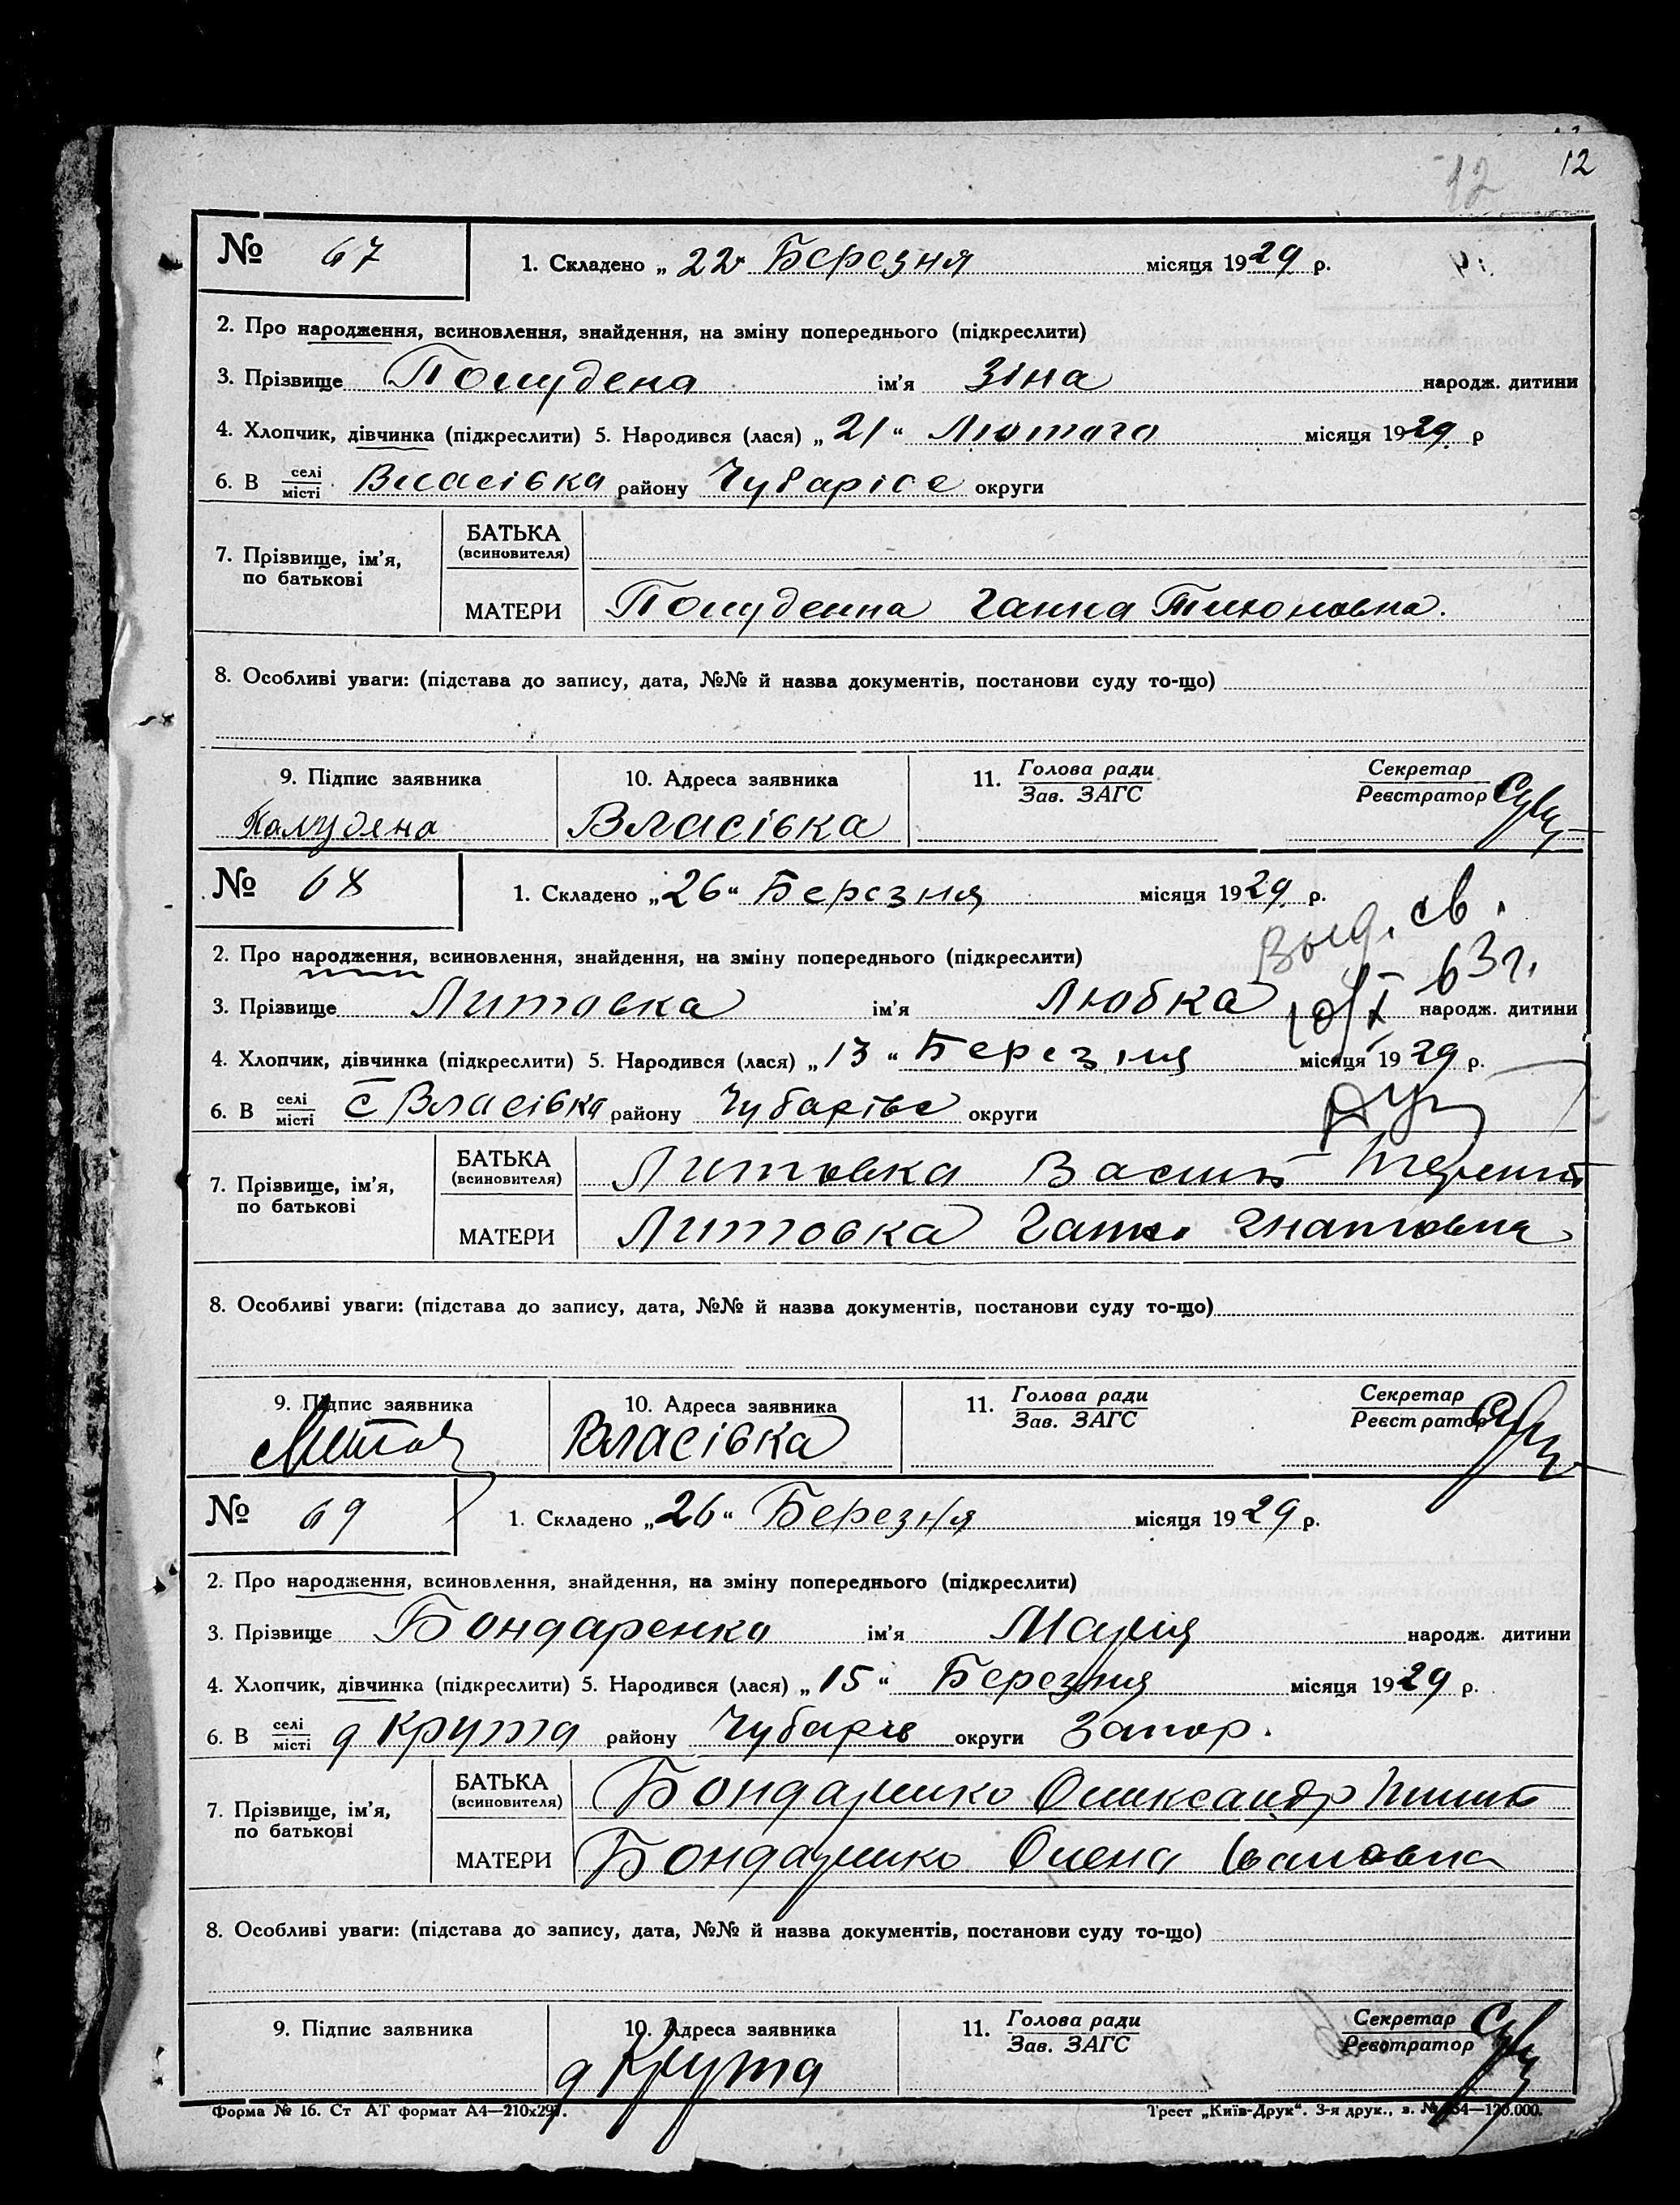 12
12
№ 67
1. Складено „ 22 Березня місяця 1929 р.
2. Про народження, всиновлення, знайдення, на зміну попереднього (підкреслити)
3. Прізвище Полудена ім'я Зіна народж. дитини
4. Хлопчик, дівчинка (підкреслити) 5. Народився (лася) „ 21 “ Лютого місяця 1929 р
6. В селі місті Власівка району округи
7. Прізвище, ім'я, по батькові
БАТЬКА (всиновителя)
МАТЕРИ Полуденна Ганна
8. Особливі уваги: (підстава до запису, дата, №№ й назва документів, постанови суду то-що)
9. Підпис заявника 10. Адреса заявника 11. Голова ради Зав. ЗАГС Секретар Реєстратор
Полудена Власівка
№ 68
1. Складено „ 26 “ Березня місяця 1929 р.
Выд. св.
2. Про народження, всиновлення, знайдення, на зміну попереднього (підкреслити)
63 г.
3. Прізвище Литовка ім'я Любка народж. дитини
4. Хлопчик, дівчинка (підкреслити) 5. Народився (лася) „ 13 “ Березня місяця 1929 р.
6. В селі місті с Власівка району Чубарівс округи
7. Прізвище, ім'я, по батькові
БАТЬКА (всиновителя) Литовка Василь
МАТЕРИ Литовка Гнатовна
8. Особливі уваги: (підстава до запису, дата, №№ й назва документів, постанови суду то-що)
9. Підпис заявника 10. Адреса заявника 11. Голова ради Зав. ЗАГС Секретар Реєстратор
Власівка
№ 69
1. Складено „ 26 “ Березня місяця 1929 р.
2. Про народження, всиновлення, знайдення, на зміну попереднього (підкреслити)
3. Прізвище Бондаренко ім'я Марія народж. дитини
4. Хлопчик, дівчинка (підкреслити) 5. Народився (лася) „ 15 “ Березня місяця 1929 р.
6. В селі місті д Крута району Чубарів округи Запор.
7. Прізвище, ім'я, по батькові
БАТЬКА (всиновителя) Бондаренко Олександр
МАТЕРИ Бондаренко Олена Івановна
8. Особливі уваги: (підстава до запису, дата, №№ й назва документів, постанови суду то-що)
9. Підпис заявника 10. Адреса заявника 11. Голова ради Зав. ЗАГС Секретар Реєстратор
д Крута
Форма № 16. Ст АТ формат А4—210x297.
Трест „Київ-Друк“. 3-я друк., з. №